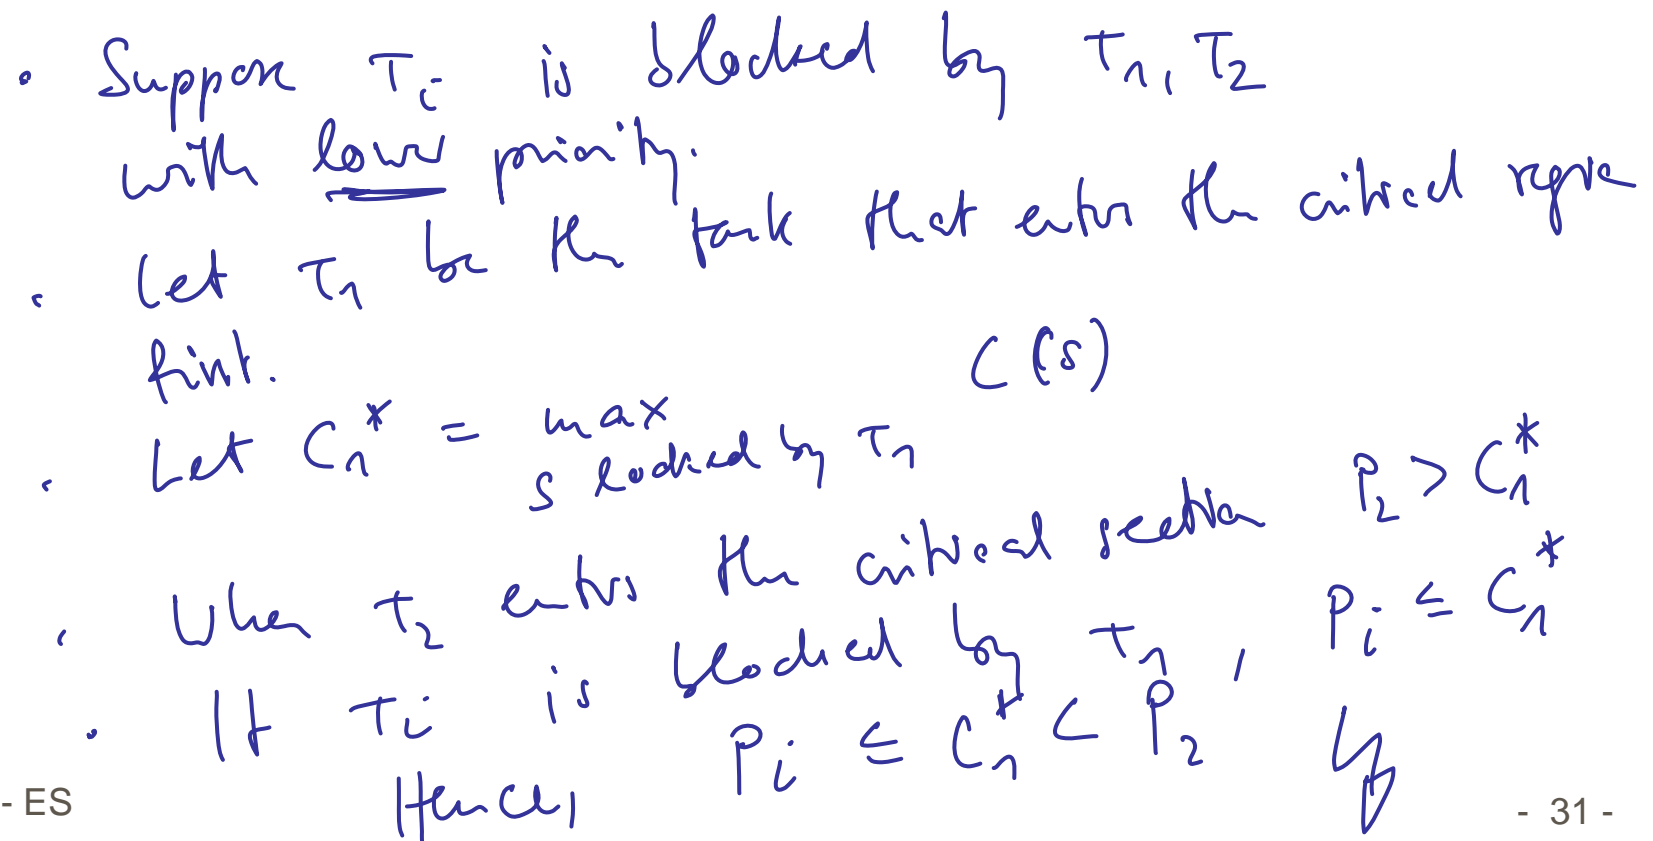 • Suppose τi is blocked by τ1, τ2
with lower priority.
• Let τ1 be the task that enters the critical region
first.
• Let C1* = max C(s)
s locked by τ1
• When τ2 enters the critical section P2 > C1*
• If τi is blocked by τ1, Pi ≤ C1*
Hence, Pi ≤ C1* < P2 ↯
- ES
- 31 -